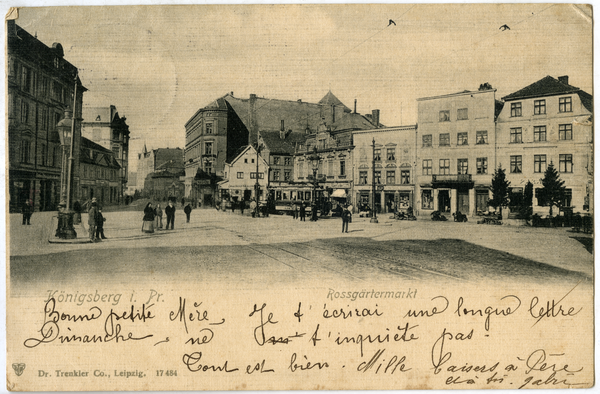 Königsberg i. Pr.
Rossgärtermarkt
Bonne petite Mère, Je t'écrirai une longue lettre
Dimanche, ne t'inquiète pas.
Tout est bien. Mille baisers, à Père
et à
Dr. Trenkler Co., Leipzig. 17484